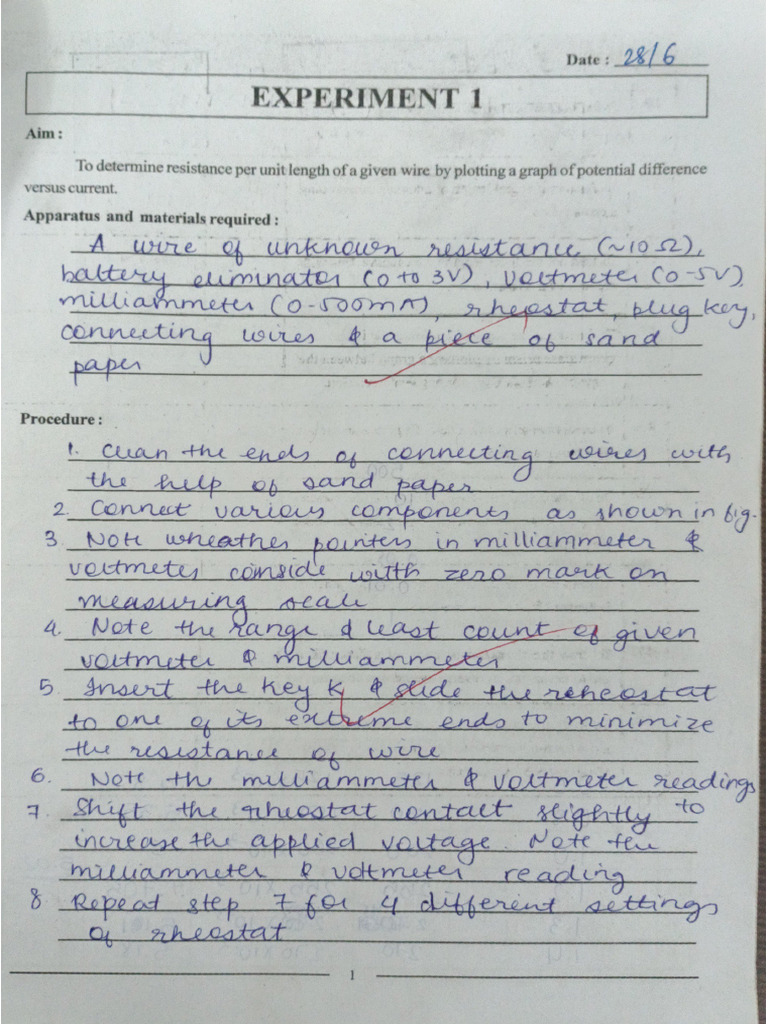 Date : 28/6
EXPERIMENT 1
Aim :
To determine resistance per unit length of a given wire by plotting a graph of potential difference
versus current.
Apparatus and materials required :
A wire of unknown resistance (~10 Ω),
battery eliminator (0 to 3V), voltmeter (0-5V)
milliammeter (0-500mA), rheostat, plug key,
connecting wires & a piece of sand
paper
Procedure :
1. Clean the ends of connecting wires with
the help of sand paper
2. Connect various components as shown in fig.
3. Note wheather pointers in milliammeter &
voltmeter conside witth zero mark on
measuring scale
4. Note the range & least count of given
voltmeter & milliammeter
5. Insert the key K & slide the rheostat
to one of its extreme ends to minimize
the resistance of wire
6. Note the milliammeter & voltmeter readings
7. Shift the rheostat contact slightly to
increase the applied voltage. Note the
milliammeter & voltmeter reading
8 Repeat step 7 for 4 different settings
of rheostat
1